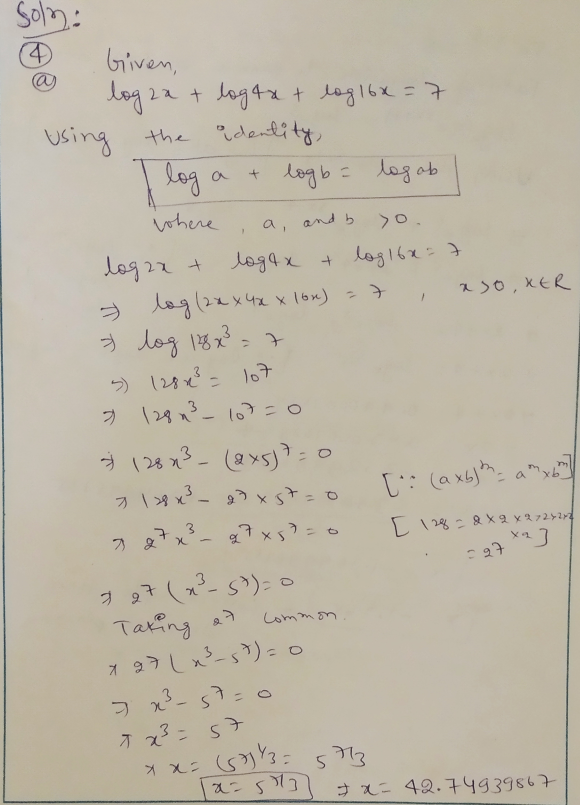 Soln:
④
ⓐ
Given,
log2x + log4x + log16x = 7
Using the identity,
log a + log b = log ab
where, a, and b > 0.
log2x + log4x + log16x = 7
⇒ log(2x × 4x × 16x) = 7 , x > 0, x ∈ R
⇒ log 128x³ = 7
⇒ 128x³ = 10⁷
⇒ 128x³ - 10⁷ = 0
⇒ 128x³ - (2×5)⁷ = 0
⇒ 128x³ - 2⁷ × 5⁷ = 0 [∵ (a×b)ᵐ = aᵐ×bᵐ]
⇒ 2⁷x³ - 2⁷×5⁷ = 0 [128 = 2×2×2×2×2×2
×2]
= 2⁷
⇒ 2⁷(x³ - 5⁷) = 0
Taking 2⁷ common.
⇒ 2⁷(x³ - 5⁷) = 0
⇒ x³ - 5⁷ = 0
⇒ x³ = 5⁷
⇒ x = (5⁷)^1/3 = 5^7/3
x = 5^7/3 ⇒ x = 42.74939867